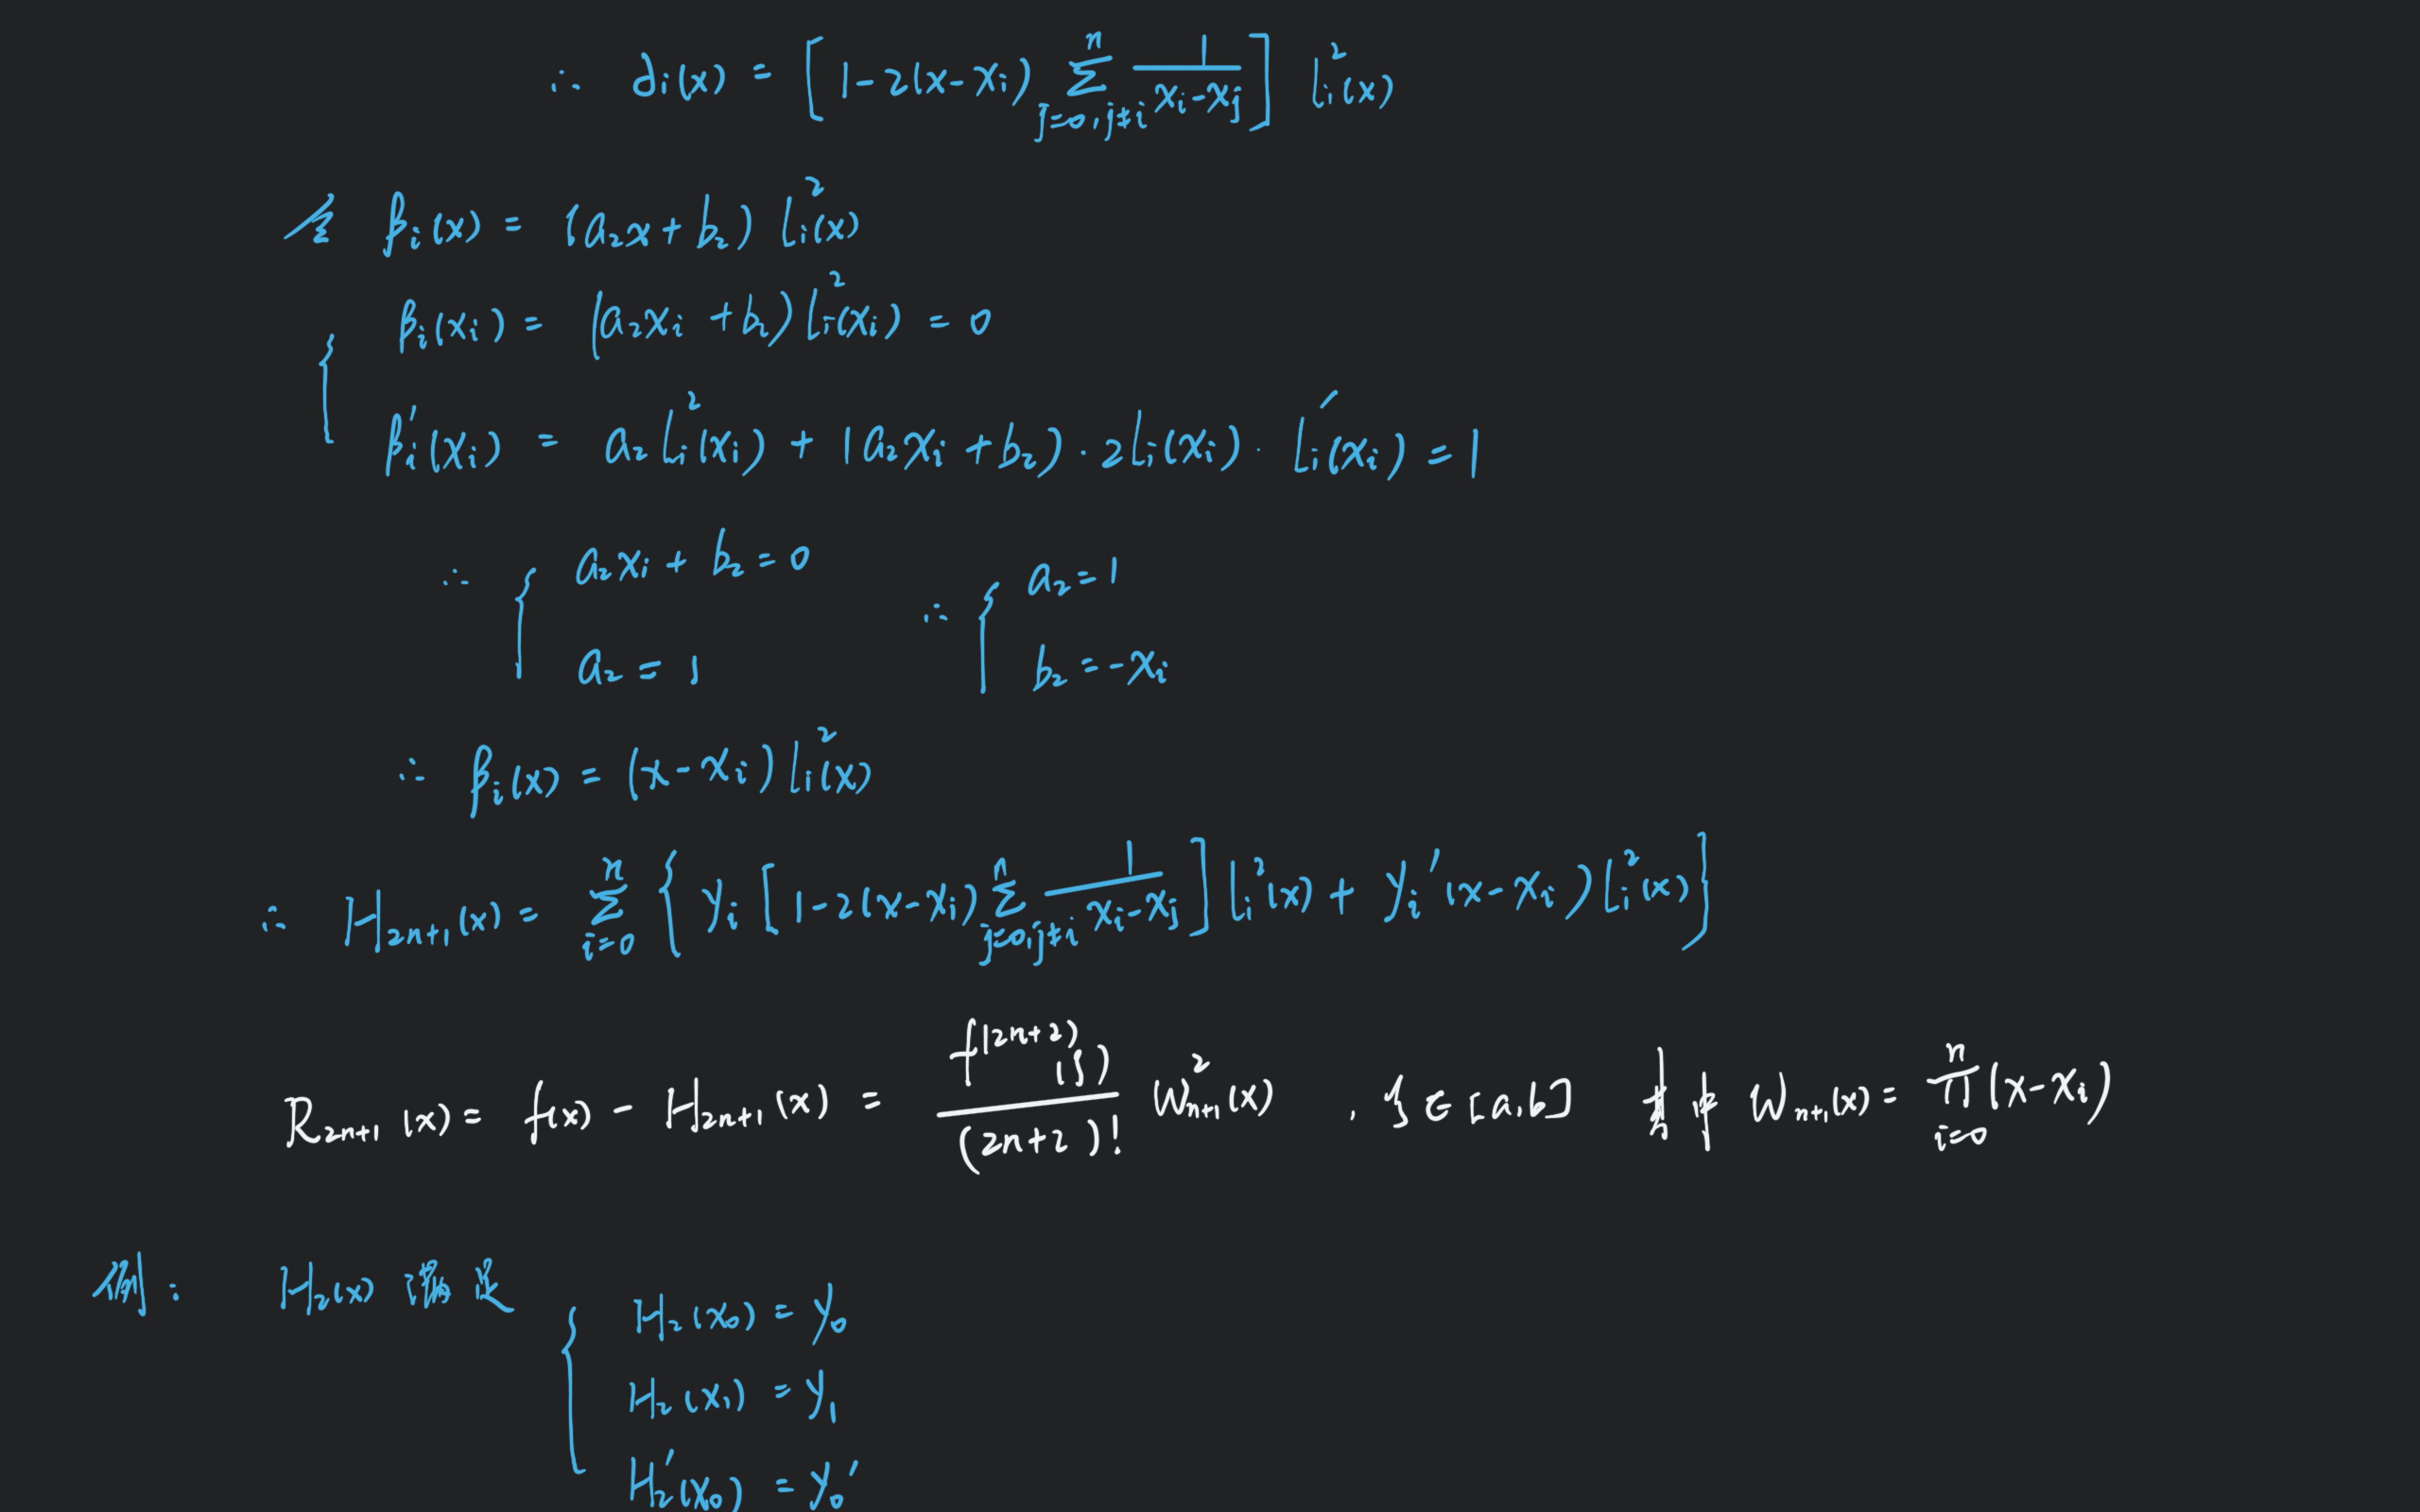 ∴ αi(x) = [1-2(x-xi) Σ_{j=0,j≠i}^{n} 1/(xi-xj)] li²(x)
令 βi(x) = (a₂x+b₂) li²(x)
{ βi(xi) = (a₂xi+b₂) li²(xi) = 0
βi'(xi) = a₂li²(xi) + (a₂xi+b₂)·2li(xi)·li'(xi) = 1
∴ { a₂xi+b₂=0 ∴ { a₂=1
a₂=1 b₂=-xi
∴ βi(x) = (x-xi) li²(x)
∴ H₂ₙ₊₁(x) = Σ_{i=0}^{n} { yi [1-2(x-xi) Σ_{j=0,j≠i}^{n} 1/(xi-xj)] li²(x) + yi'(x-xi) li²(x) }
R₂ₙ₊₁(x) = f(x) - H₂ₙ₊₁(x) = f^(2n+2)(ξ)/(2n+2)! Wₙ₊₁²(x) , ξ∈[a,b] 其中 Wₙ₊₁(x) = Π_{i=0}^{n} (x-xi)
例: H₂(x) 满足
{ H₂(x₀) = y₀
H₂(x₁) = y₁
H₂'(x₀) = y₀'